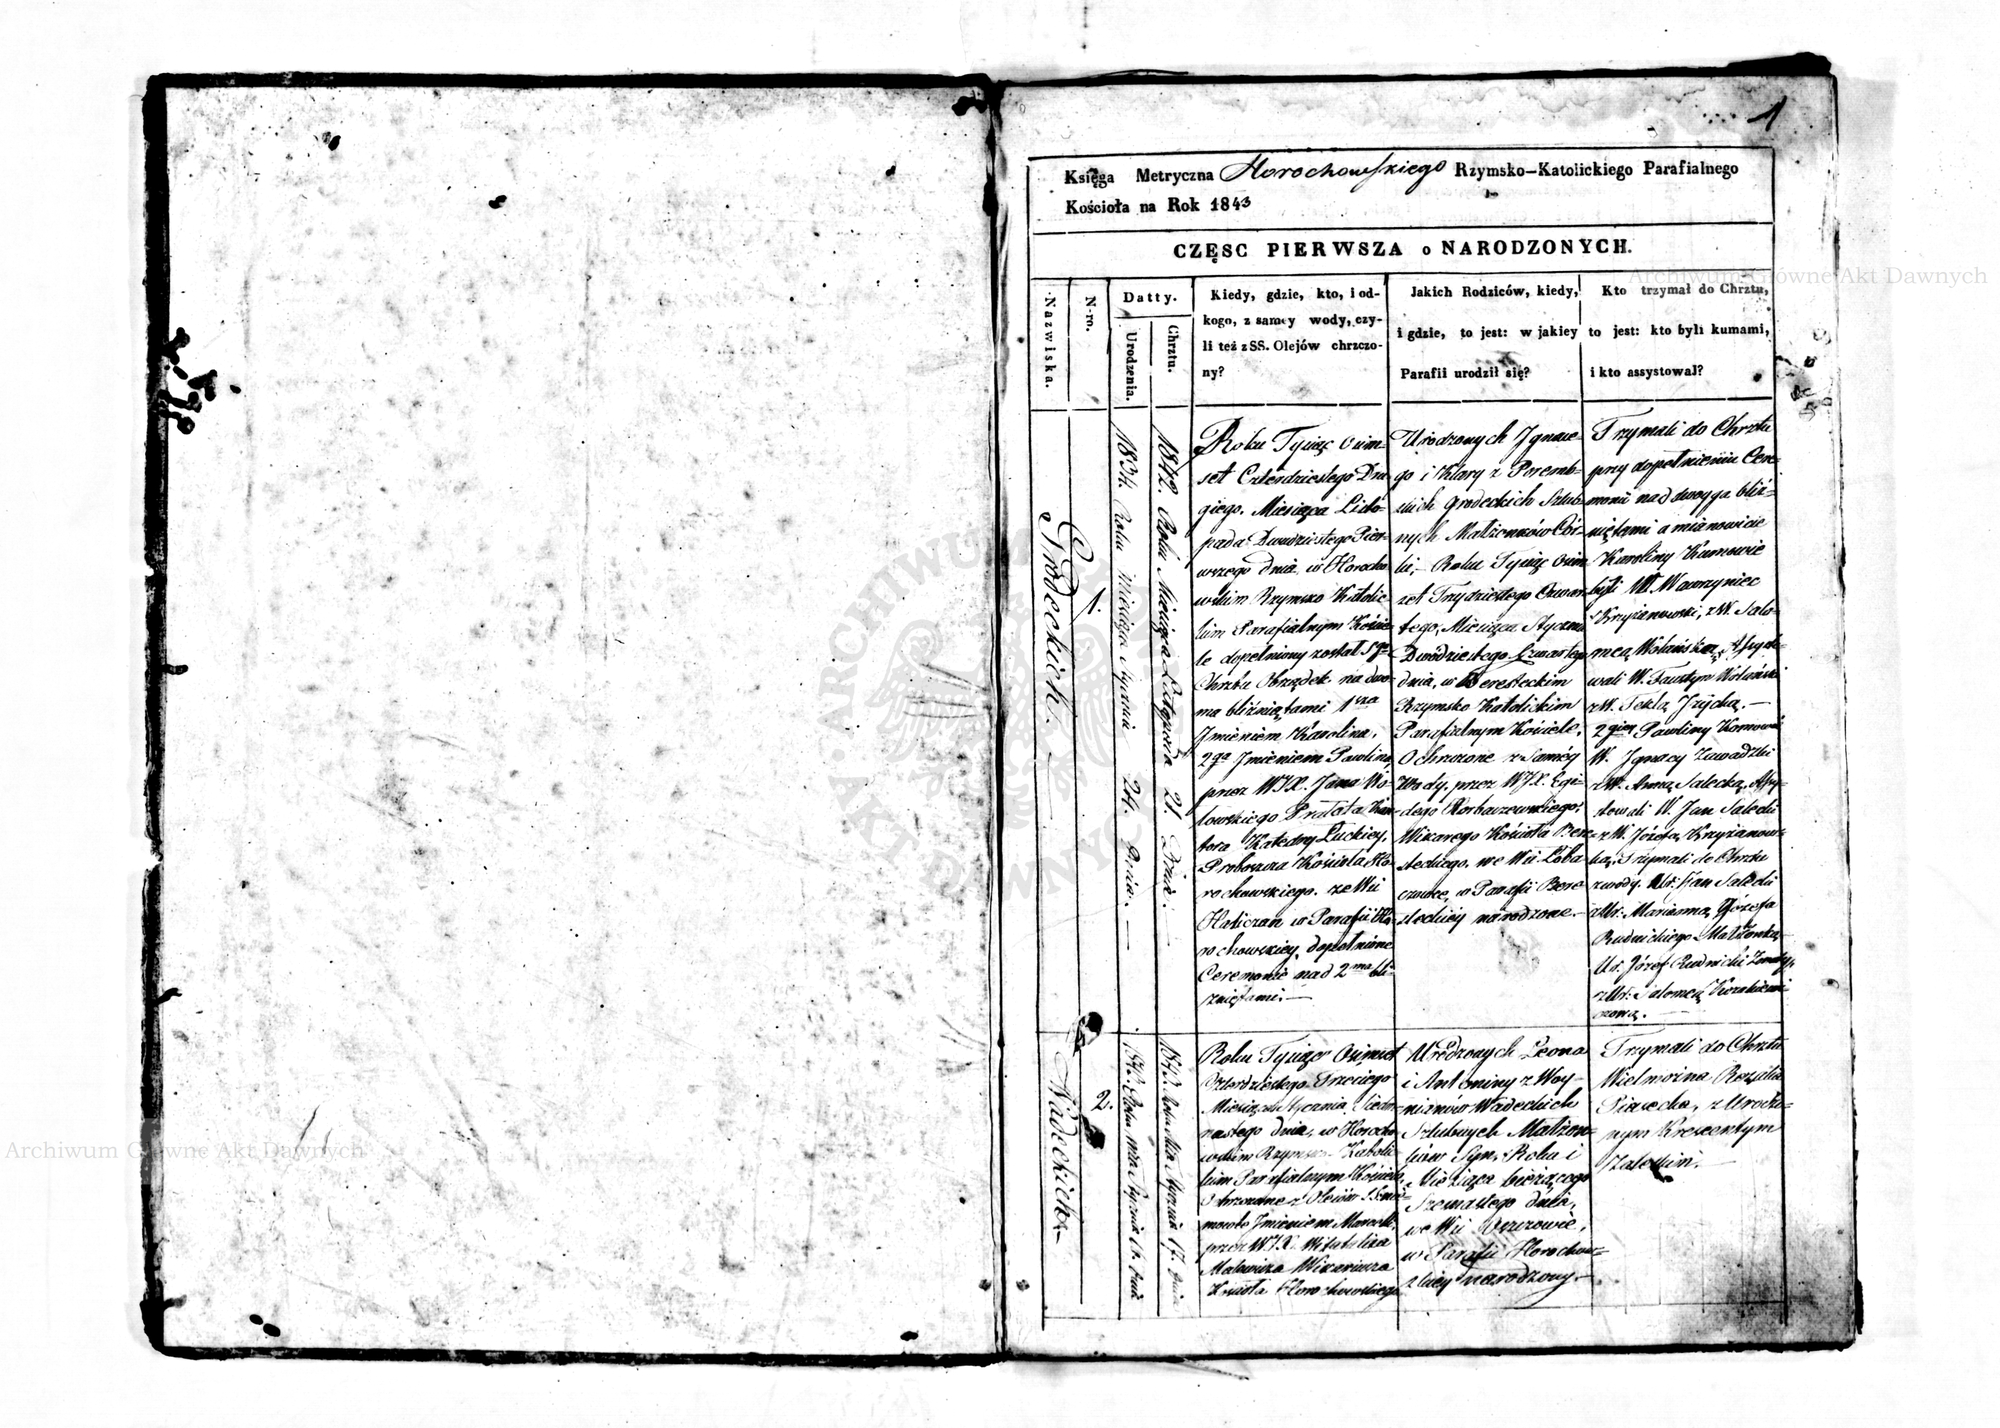 1
Księga Metryczna Horochowskiego Rzymsko-Katolickiego Parafialnego
Kościoła na Rok 1843
CZĘSC PIERWSZA o NARODZONYCH.
Nazwiska.
N-ro.
Datty.
Urodzenia.
Chrztu.
Kiedy, gdzie, kto, i od-
kogo, z samey wody, czy-
li też z SS. Olejów chrzczo-
ny?
Jakich Rodziców, kiedy,
i gdzie, to jest: w jakiey
Parafii urodził się?
Kto trzymał do Chrztu,
to jest: kto byli kumami,
i kto assystował?
Grodeckich.
1.
1834. Roku Miesiąca Stycznia 24. Dnia.
1842. Roku Miesiąca Listopada 21 Dnia.
Roku Tysiąc Osim-
set Czterdziestego Dru-
giego, Miesiąca Listo-
pada Dwudziestego Pier-
wszego dnia w Horocho-
wskim Rzymsko Katolic-
kim Parafialnym Koście-
le dopełniony został
Chrztu Obrządek na dwo-
ma bliźniętami 1sza
Imieniem Karolina,
2ga Imieniem Pawlina,
przez WJX. Jana
Prałata Kan-
tora Katedry Łuckiey,
Proboszcza Kościoła Ho-
rochowskiego. ze Wsi
Haliczan w Parafii Ho-
rochowskiey, dopełnione
Ceremonie nad 2ma bli-
źniętami.
Urodzonych Ignace-
go i Klary z Poremb-
skich Grodeckich Szlub-
nych Małżonków Cór-
ki, Roku Tysiąc Osim
set Trzydziestego Czwar-
tego, Miesiąca Stycznia
Dwódziestego Czwartego
dnia, w Beresteckim
Rzymsko Katolickim
Parafialnym Kościele,
Ochrzczone z Saméy
Wody, przez WJX. Egi-
dego
Wikarego Kościoła Bere-
steckiego, we Wsi
w Parafii Bere
steckiey narodzone.
Trzymali do Chrztu
przy dopełnieniu Cere-
monii nad dwoyga bliź-
niętami a mianowicie
Karoliny Kumowie
byli W. Wawrzyniec
Krzyżanowski, z W. Salo-
meą Assysto-
wali W. Faustyn
z W. Teklą
2giey Pawliny Kumowie
W. Ignacy Zawadzki
z W. Anną Salecką, Assy-
stowali W. Jan Salecki
z W. Józefą Krzyżanows-
ką, Trzymali do Chrztu
z wody. Ur. Jan Salecki
z Ur. Marianną Józefa
Rudnickiego Małżonką
Ur. Józef Rudnicki
z Ur. Salomeą
Wadeckich
2.
1843. Roku Mca Stycznia 16. dnia
1843. Roku Mca Stycznia 17. dnia
Roku Tysiącz Osimset
Czterdziestego Trzeciego
Miesiąca Stycznia Siedm-
nastego dnia, w Horocho-
wskim Rzymsko Katolic-
kim Parafialnym Kościele,
przez WJX.
Wikariusza
Kościoła Horochowskiego
Urodzonych Leona
i Antoniny z Woy-
nianów Wadeckich
Szlubnych Małżon-
ków Syn, Roku i
Miesiąca bieżącego
Szesnastego dnia,
we Wsi
w Parafii Horochow-
skiey narodzony.
Trzymali do Chrztu
Wielmożna Rozalia
Piasecka, z Urodzo-
nym Krescentym
Archiwum Główne Akt Dawnych
Archiwum Główne Akt Dawnych
ARCHIWUM GŁÓWNE AKT DAWNYCH